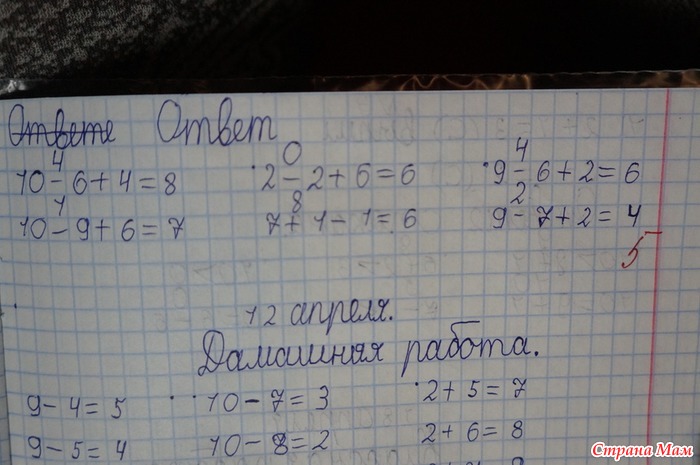 Ответе Ответ
4 0 4
10-6+4=8 2-2+6=6 9-6+2=6
1 8 2
10-9+6=7 7+1-1=6 9-7+2=4
5-
12 апреля.
Дамашняя работа.
9-4=5 10-7=3 2+5=7
9-5=4 10-8=2 2+6=8
Страна Мам